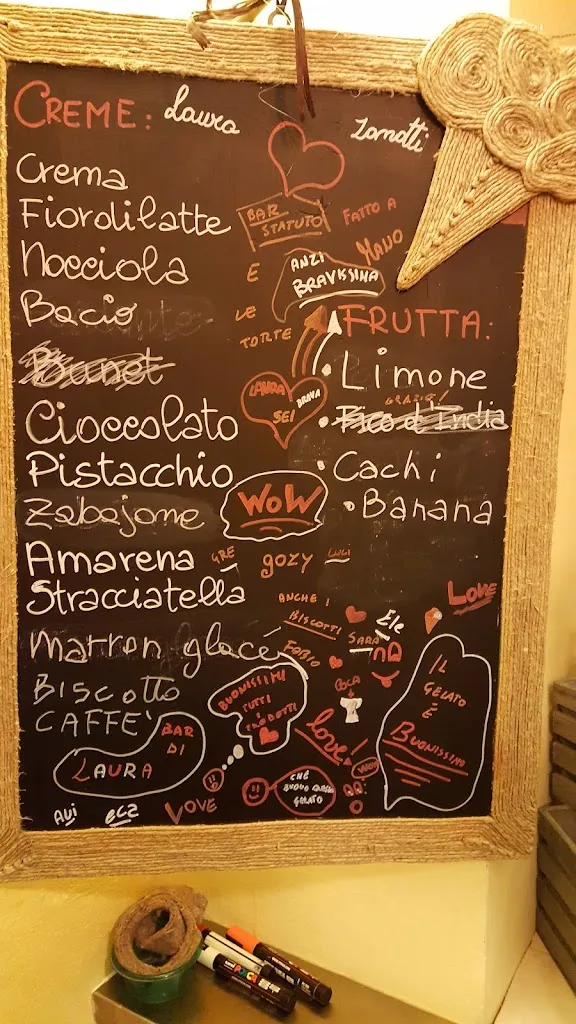 CREME: Laura Zanotti
Crema
Fiordilatte
Nocciola
Bacio
Bunet
Cioccolato
Pistacchio
Zabajone
Amarena
Stracciatella
Marron glacé
BISCOTTO
CAFFE'
BAR
STATUTO
FATTO A
MANO
ANZI
BRAVISSIMA
E
LE
TORTE
FRUTTA:
• Limone
GRAZIE!
• Fico d'India
• Cachi
• Banana
LAURA
SEI
BRAVA
WOW
GRE
gozy
LUIGI
ANCHE I
BISCOTTI
FABIO
SARA
Ele
LOVE
BUONISSIMI
TUTTI
I PRODOTTI
COCA
love!
IL
GELATO
É
BUONISSIMO
BAR
DI
LAURA
WOW
CHE
BUONO QUESTO
GELATO
AVI
VOVE
POSCA